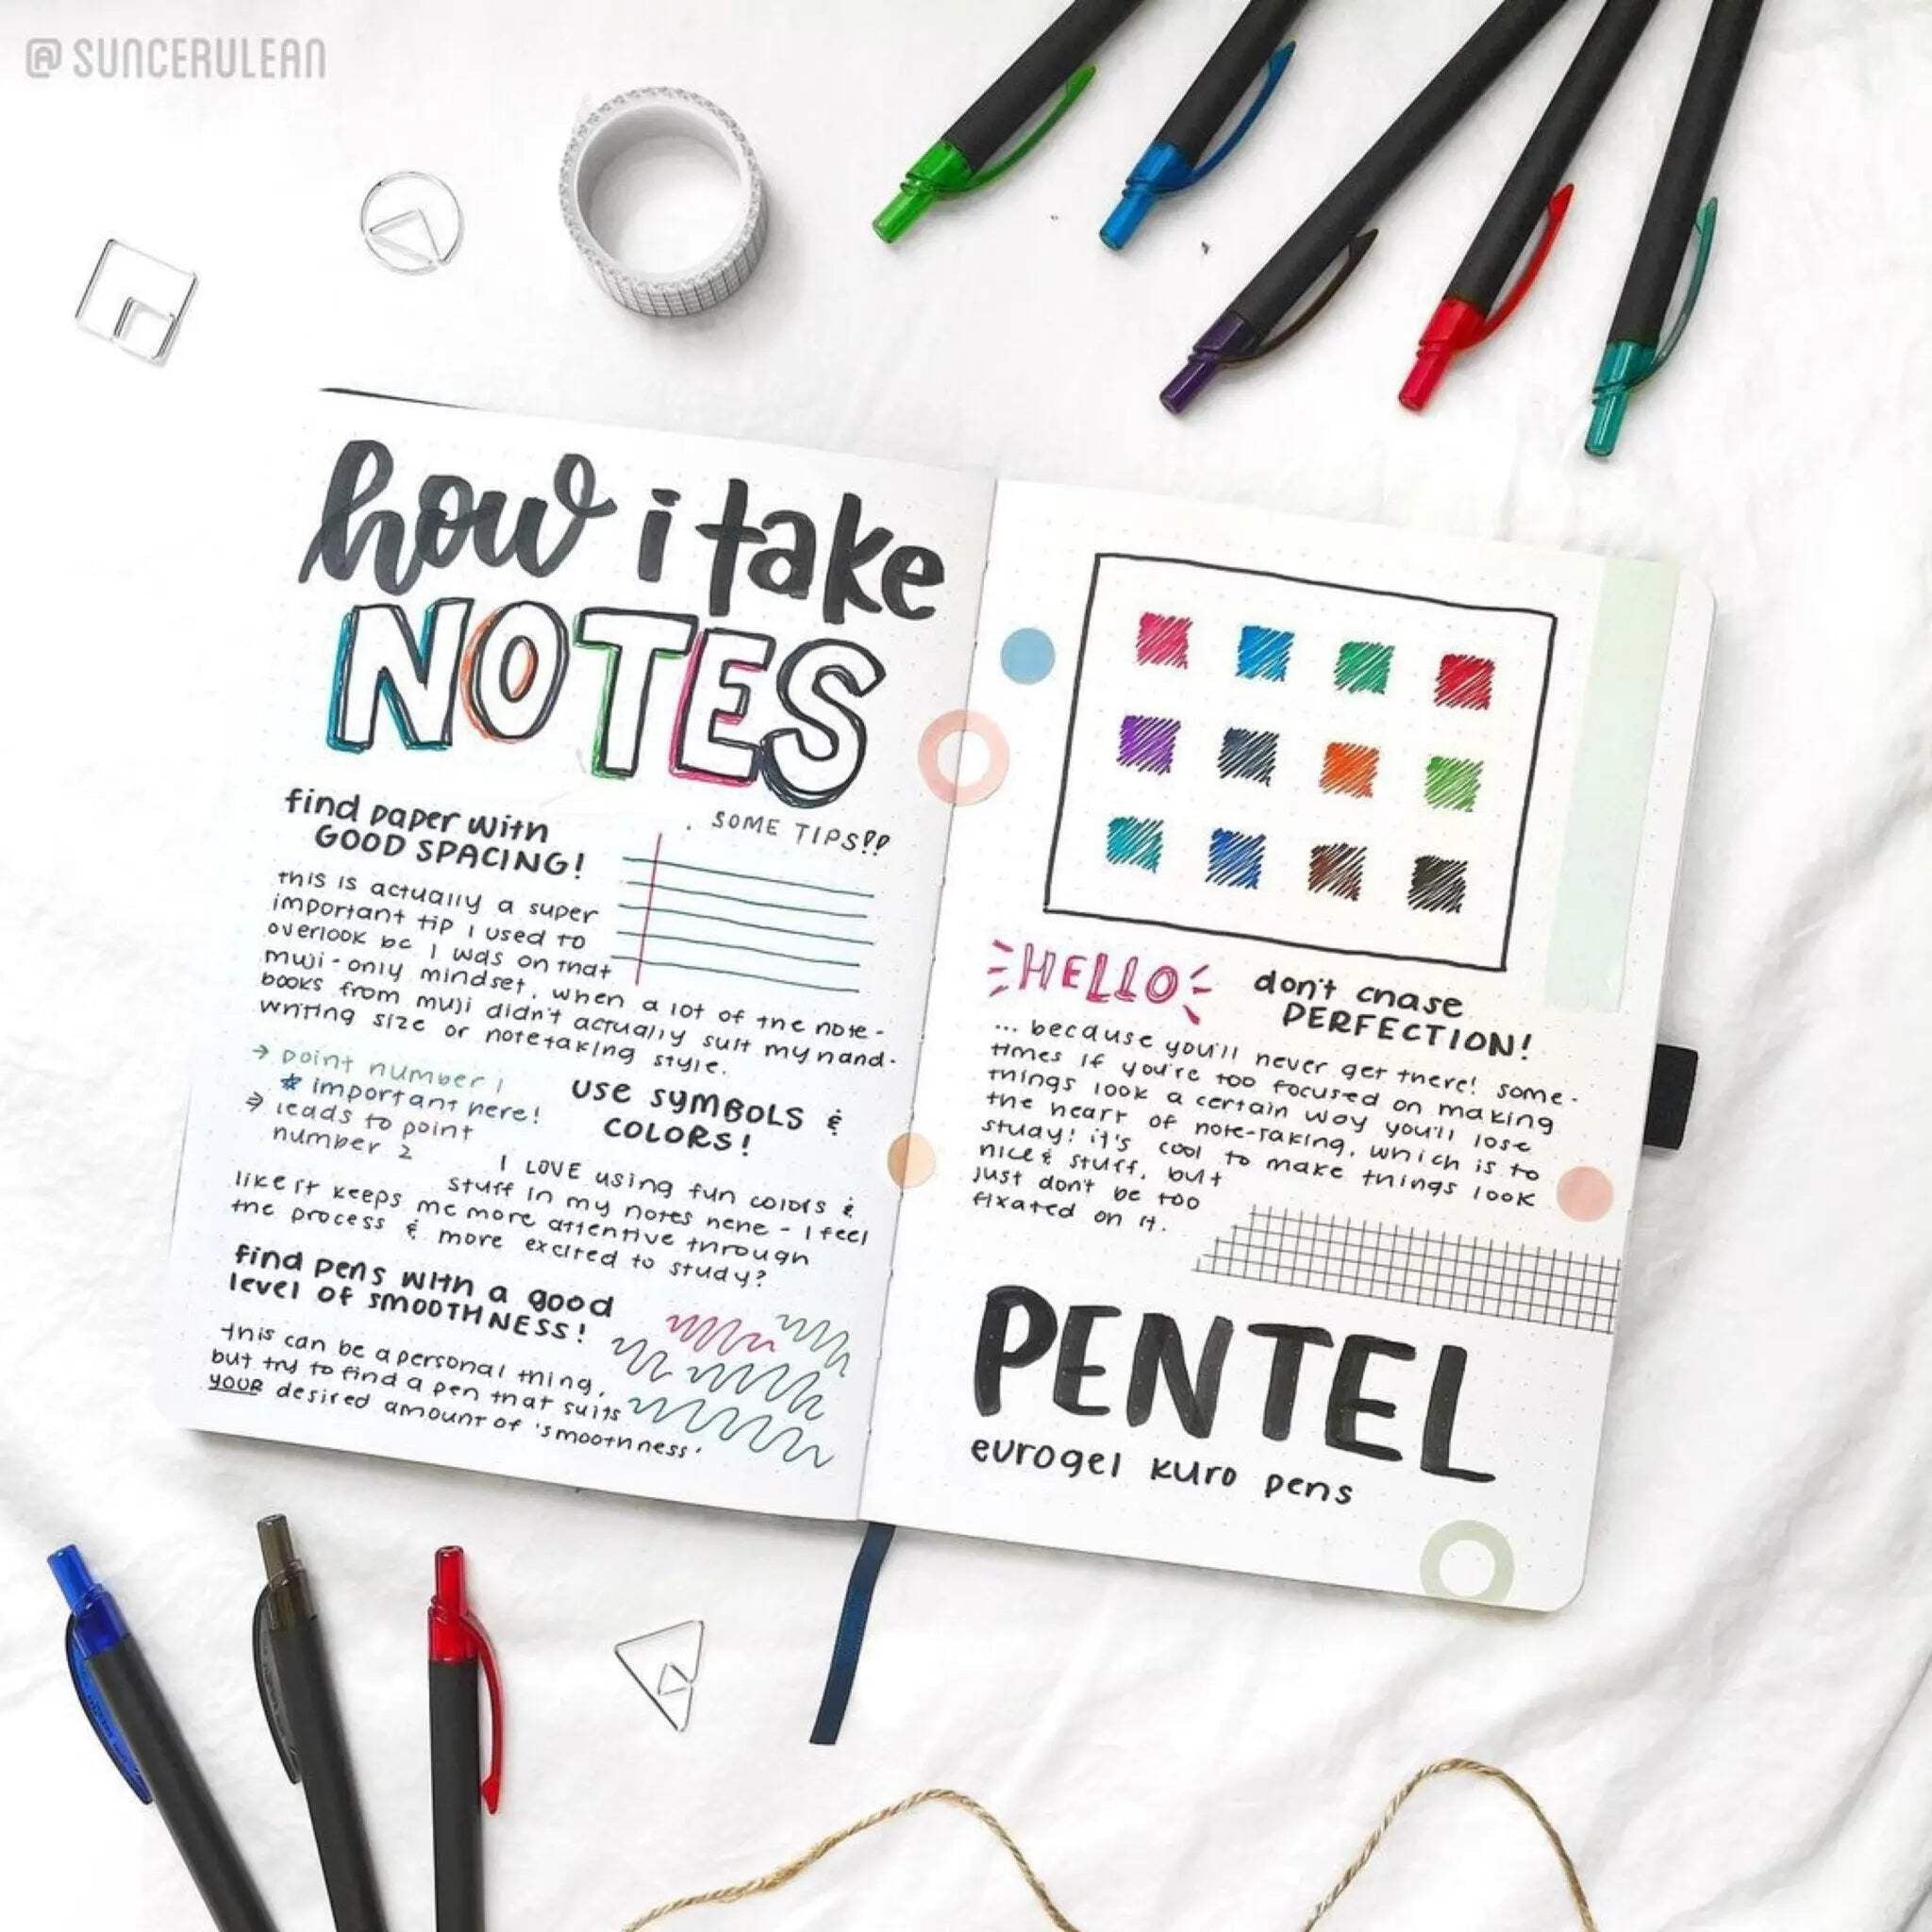 @SUNCERULEAN
how i take
NOTES
SOME TIPS!!
find paper with
GOOD SPACING!
this is actually a super
important tip i used to
overlook bc i was on that
muji-only mindset, when a lot of the note-
books from muji didn't actually suit my hand-
writing size or notetaking style.
→ point number 1
★ important here!
⇒ leads to point
number 2
use SYMBOLS &
COLORS!
I LOVE using fun colors &
stuff in my notes hehe - i feel
like it keeps me more attentive through
the process & more excited to study?
find pens with a good
level of SMOOTHNESS!
this can be a personal thing,
but try to find a pen that suits
YOUR desired amount of 'smoothness'
HELLO
don't chase
PERFECTION!
... because you'll never get there! some-
times if you're too focused on making
things look a certain way you'll lose
the heart of note-taking, which is to
study! it's cool to make things look
nice & stuff, but
just don't be too
fixated on it.
PENTEL
eurogel kuro pens